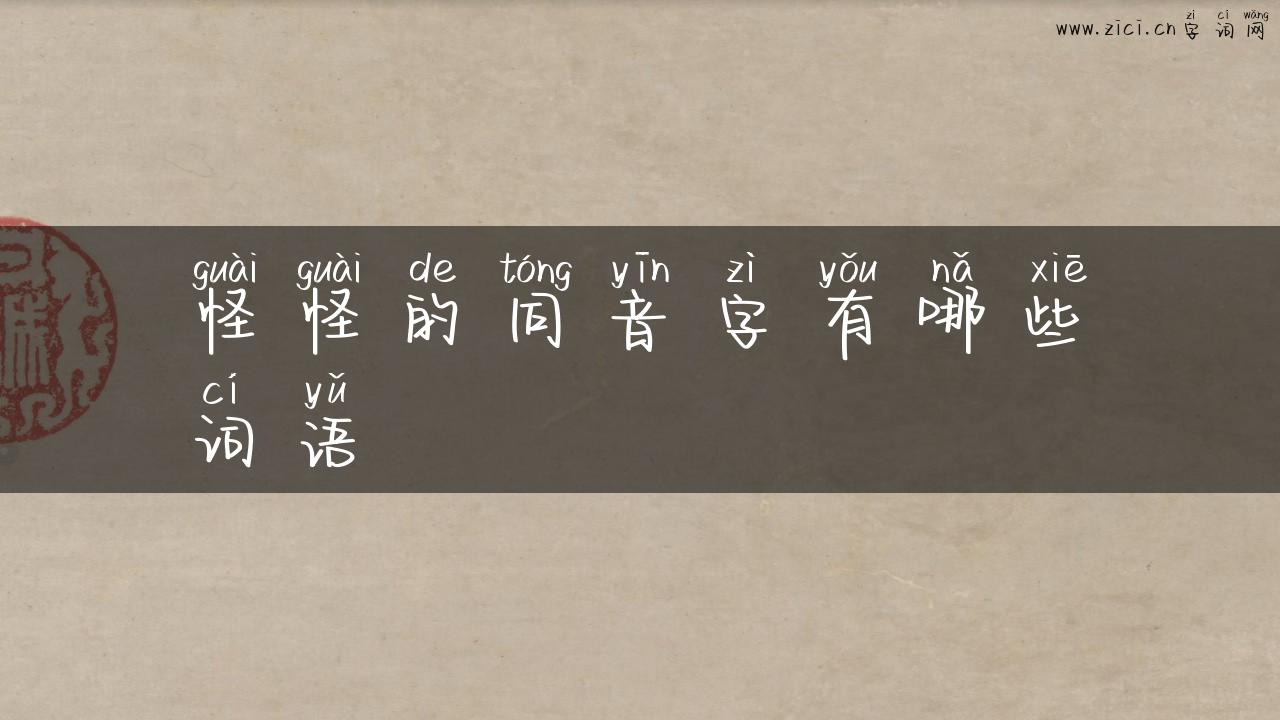 zì cí wǎng
www.zici.cn 字词网
guài guài de tóng yīn zì yǒu nǎ xiē
怪怪的同音字有哪些
cí yǔ
词语